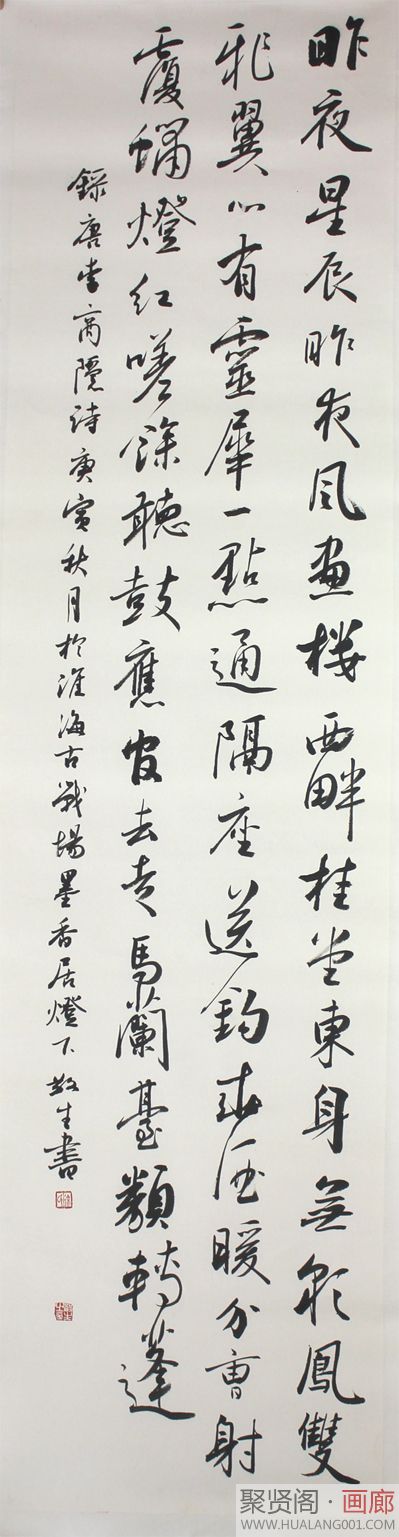 昨夜星辰昨夜風畫樓西畔桂堂東身無彩鳳雙
飛翼心有靈犀一點通隔座送鈎春酒暖分曹射
覆蠟燈紅嗟餘聽鼓應官去走馬蘭臺類轉蓬
錄唐李商隱詩庚寅秋月於淮海古戰場墨香居燈下敬生書
聚贤阁·画廊
WWW.HUALANG001.COM